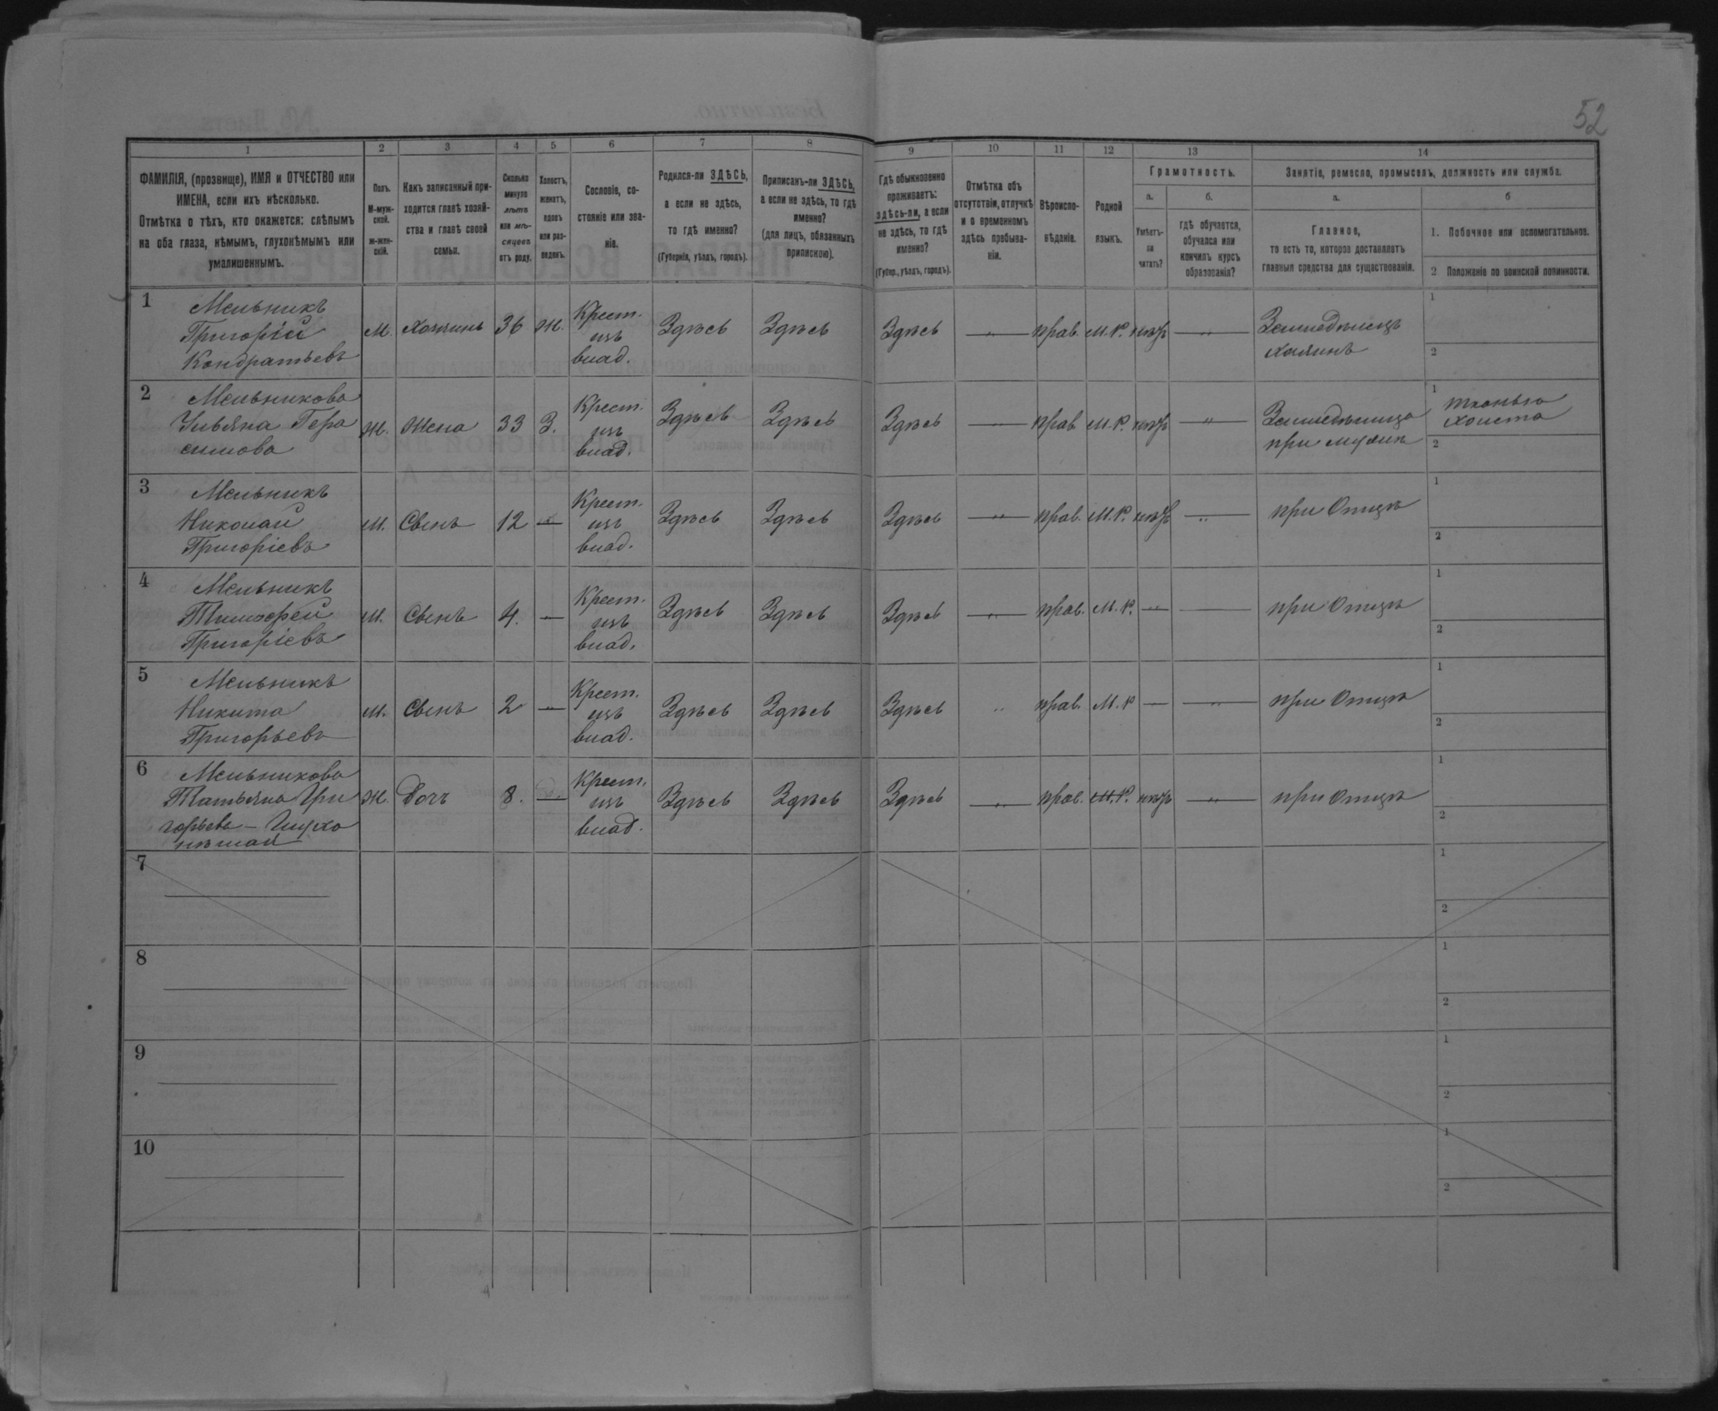 52
1 2 3 4 5 6 7 8 9 10 11 12 13 14
ФАМИЛІЯ, (прозвище), ИМЯ и ОТЧЕСТВО или
ИМЕНА, если ихъ нѣсколько.
Отмѣтка о тѣхъ, кто окажется: слѣпымъ
на оба глаза, нѣмымъ, глухонѣмымъ или
умалишеннымъ.
Полъ.
М-муж-
ской.
ж-жен-
скій.
Какъ записанный при-
ходится главѣ хозяй-
ства и главѣ своей
семьи.
Сколько
минуло
лѣтъ
или мѣ-
сяцевъ
отъ роду.
Холостъ,
женатъ,
вдовъ
или раз-
веденъ.
Сословіе, со-
стояніе или зва-
ніе.
Родился-ли ЗДѢСЬ,
а если не здѣсь,
то гдѣ именно?
(Губернія, уѣздъ, городъ).
Приписанъ-ли ЗДѢСЬ,
а если не здѣсь, то гдѣ
именно?
(для лицъ, обязанныхъ
припискою).
Гдѣ обыкновенно
проживаетъ:
здѣсь-ли, а если
не здѣсь, то гдѣ
именно?
(Губер., уѣздъ, городъ).
Отмѣтка объ
отсутствіи, отлучкѣ
и о временномъ
здѣсь пребыва-
ніи.
Вѣроиспо-
вѣданіе.
Родной
языкъ.
Грамотность.
а.
Умѣетъ-
ли
читать?
б.
гдѣ обучается,
обучался или
кончилъ курсъ
образованія?
Занятіе, ремесло, промыселъ, должность или служба.
а.
Главное,
то есть то, которое доставляетъ
главныя средства для существованія.
б
1. Побочное или вспомогательное.
2 Положеніе по воинской повинности.
1 Мельникъ
Григорій
Кондратьевъ
М. Хозяинъ 36 Ж.
Крест.
изъ
влад.
Здѣсь Здѣсь Здѣсь — прав. М.Р. нѣтъ —
Земледѣлецъ
хозяинъ
1
2
2 Мельникова
Ульяна Гера
симова
Ж. Жена 33 З.
Крест.
изъ
влад.
Здѣсь Здѣсь Здѣсь — прав М.Р. нѣтъ —
Земледѣлица
при мужѣ
1 тканью
холста
2
3 Мельникъ
Николай
Григоріевъ
М. Сынъ 12 —
Крест.
изъ
влад.
Здѣсь Здѣсь Здѣсь — прав. М.Р. нѣтъ —
при Отцѣ
1
2
4 Мельникъ
Тимофей
Григоріевъ
М. Сынъ 4. —
Крест.
изъ
влад.
Здѣсь Здѣсь Здѣсь — прав. М.Р. — —
при Отцѣ
1
2
5 Мельникъ
Никита
Григорьевъ
М. Сынъ 2 —
Крест.
изъ
влад.
Здѣсь Здѣсь Здѣсь „ прав. М.Р — —
при Отцѣ
1
2
6 Мельникова
Татьяна Гри
горьева — Глухо
нѣмая
Ж. Дочь 8. —
Крест.
изъ
влад.
Здѣсь Здѣсь Здѣсь — прав. М.Р. нѣтъ —
при Отцѣ
1
2
7
1
2
8
1
2
9
1
2
10
1
2